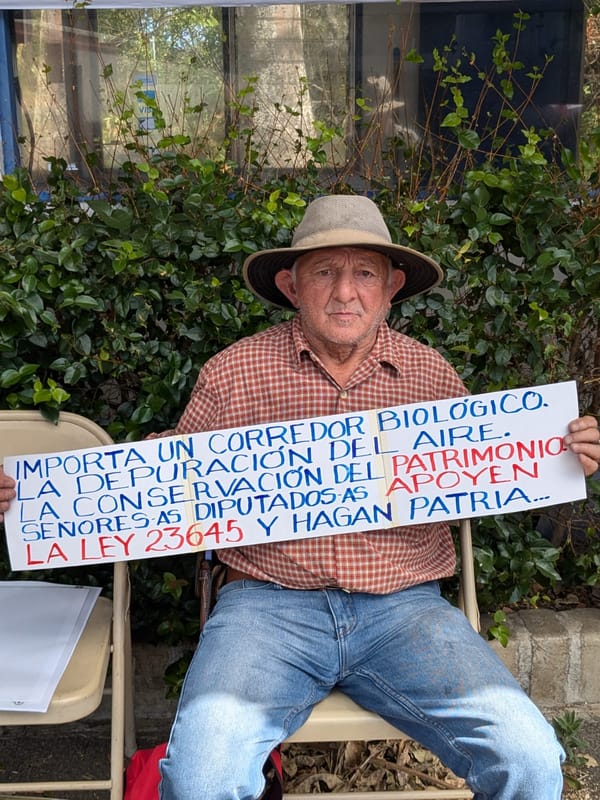 IMPORTA UN CORREDOR BIOLÓGICO.
LA DEPURACIÓN DEL AIRE.
LA CONSERVACIÓN DEL PATRIMONIO.
SEÑORES-AS DIPUTADOS-AS APOYEN
LA LEY 23645 Y HAGAN PATRIA...